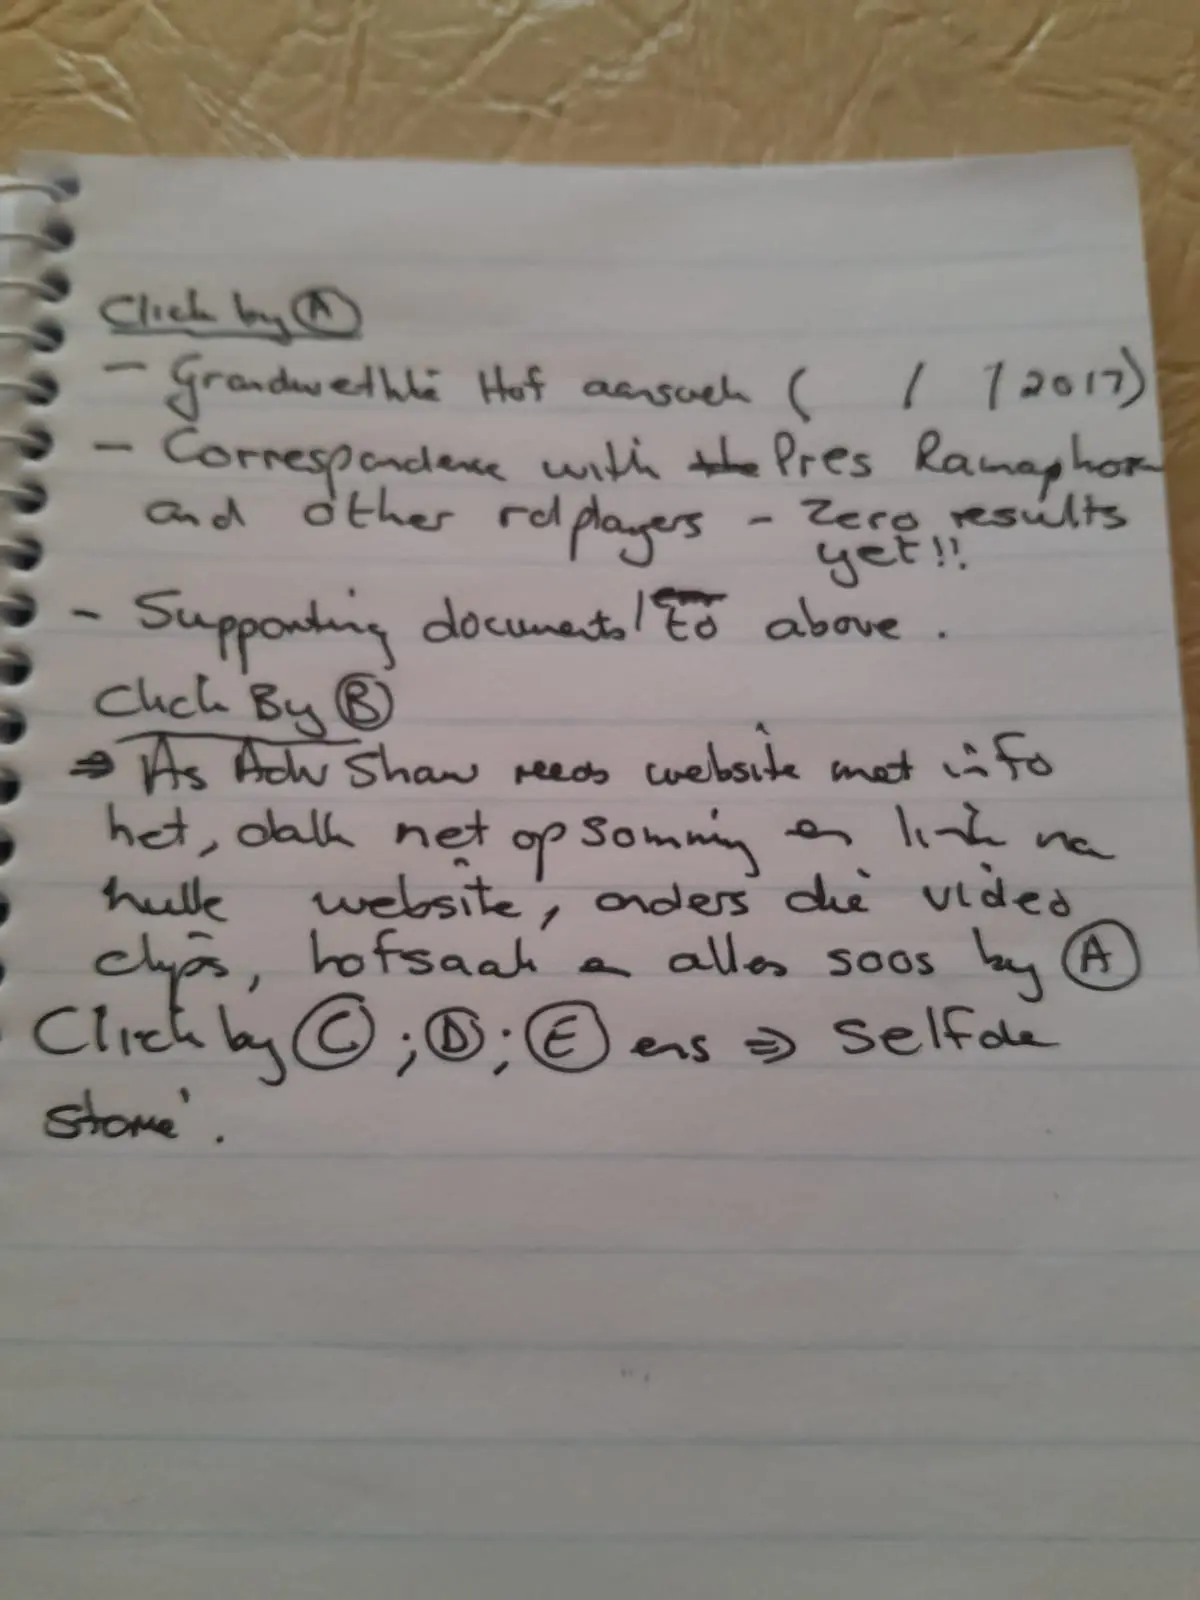 Click by (A)
- Grondwetlike Hof aansoek ( / / 2017)
- Correspondence with the Pres Ramaphosa
and other rolplayers - Zero results
yet!!
- Supporting documents to above.
Click By (B)
⇒ As Adv Shaw reeds website met info
het, dalk net opsomming en link na
hulle website, anders die video
clips, hofsaak en alles soos by (A)
Click by (C); (D); (E) ens ⇒ Selfde
storie.